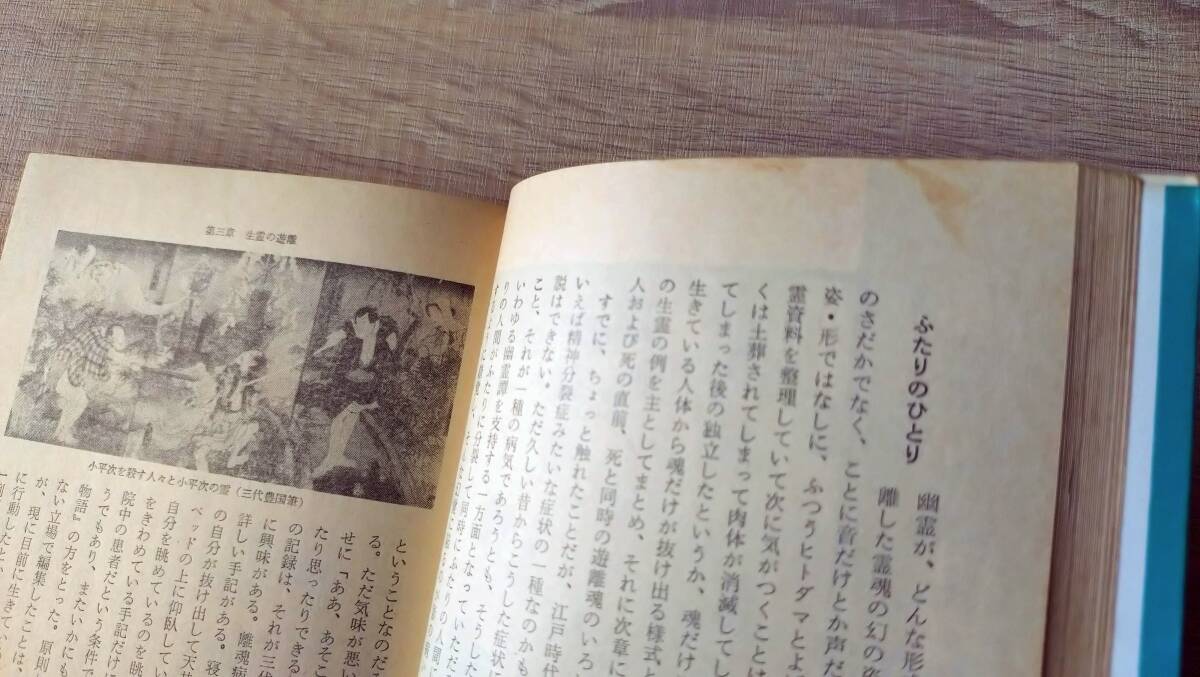 ふたりのひとり
幽霊が、どんな形
離した霊魂の幻の姿
のさだかでなく、ことに音だけとか声だ
姿・形ではなしに、ふつうヒトダマとよ
霊資料を整理していて次に気がつくことは
くは土葬されてしまって肉体が消滅してし
てしまった後の独立したというか、魂だけ
生きている人体から魂だけが抜け出る様式と
の生霊の例を主としてまとめ、それに次章に
人および死の直前、死と同時の遊離魂のいろ
すでに、ちょっと触れたことだが、江戸時代
いえば精神分裂症みたいな症状の一種なのかも
説はできない。ただ久しい昔からこうした症状に
こと、それが一種の病気であろうとも、そうした
いわゆる幽霊譚を支持する一方面となっていただ
りの人間がふたりに分界して同時にふたりの人間、
第三章 生霊の遊離
小平次を殺す人々と小平次の霊（三代豊国筆）
ということなのだ
る。ただ気味が悪い
せに「ああ、あそこ
たり思ったりできる
の記録は、それが三代
に興味がある。離魂病
詳しい手記がある。寝
の自分が抜け出して天井
ベッドの上に仰臥してい
自分を眺めているのを眺
をきわめている手記だけに
院中の患者だという条件で
うでもあり、またいかにも
物語』の方をとった。原則
ない立場で編集したことは、
が、現に目前に生きて
に行動したと